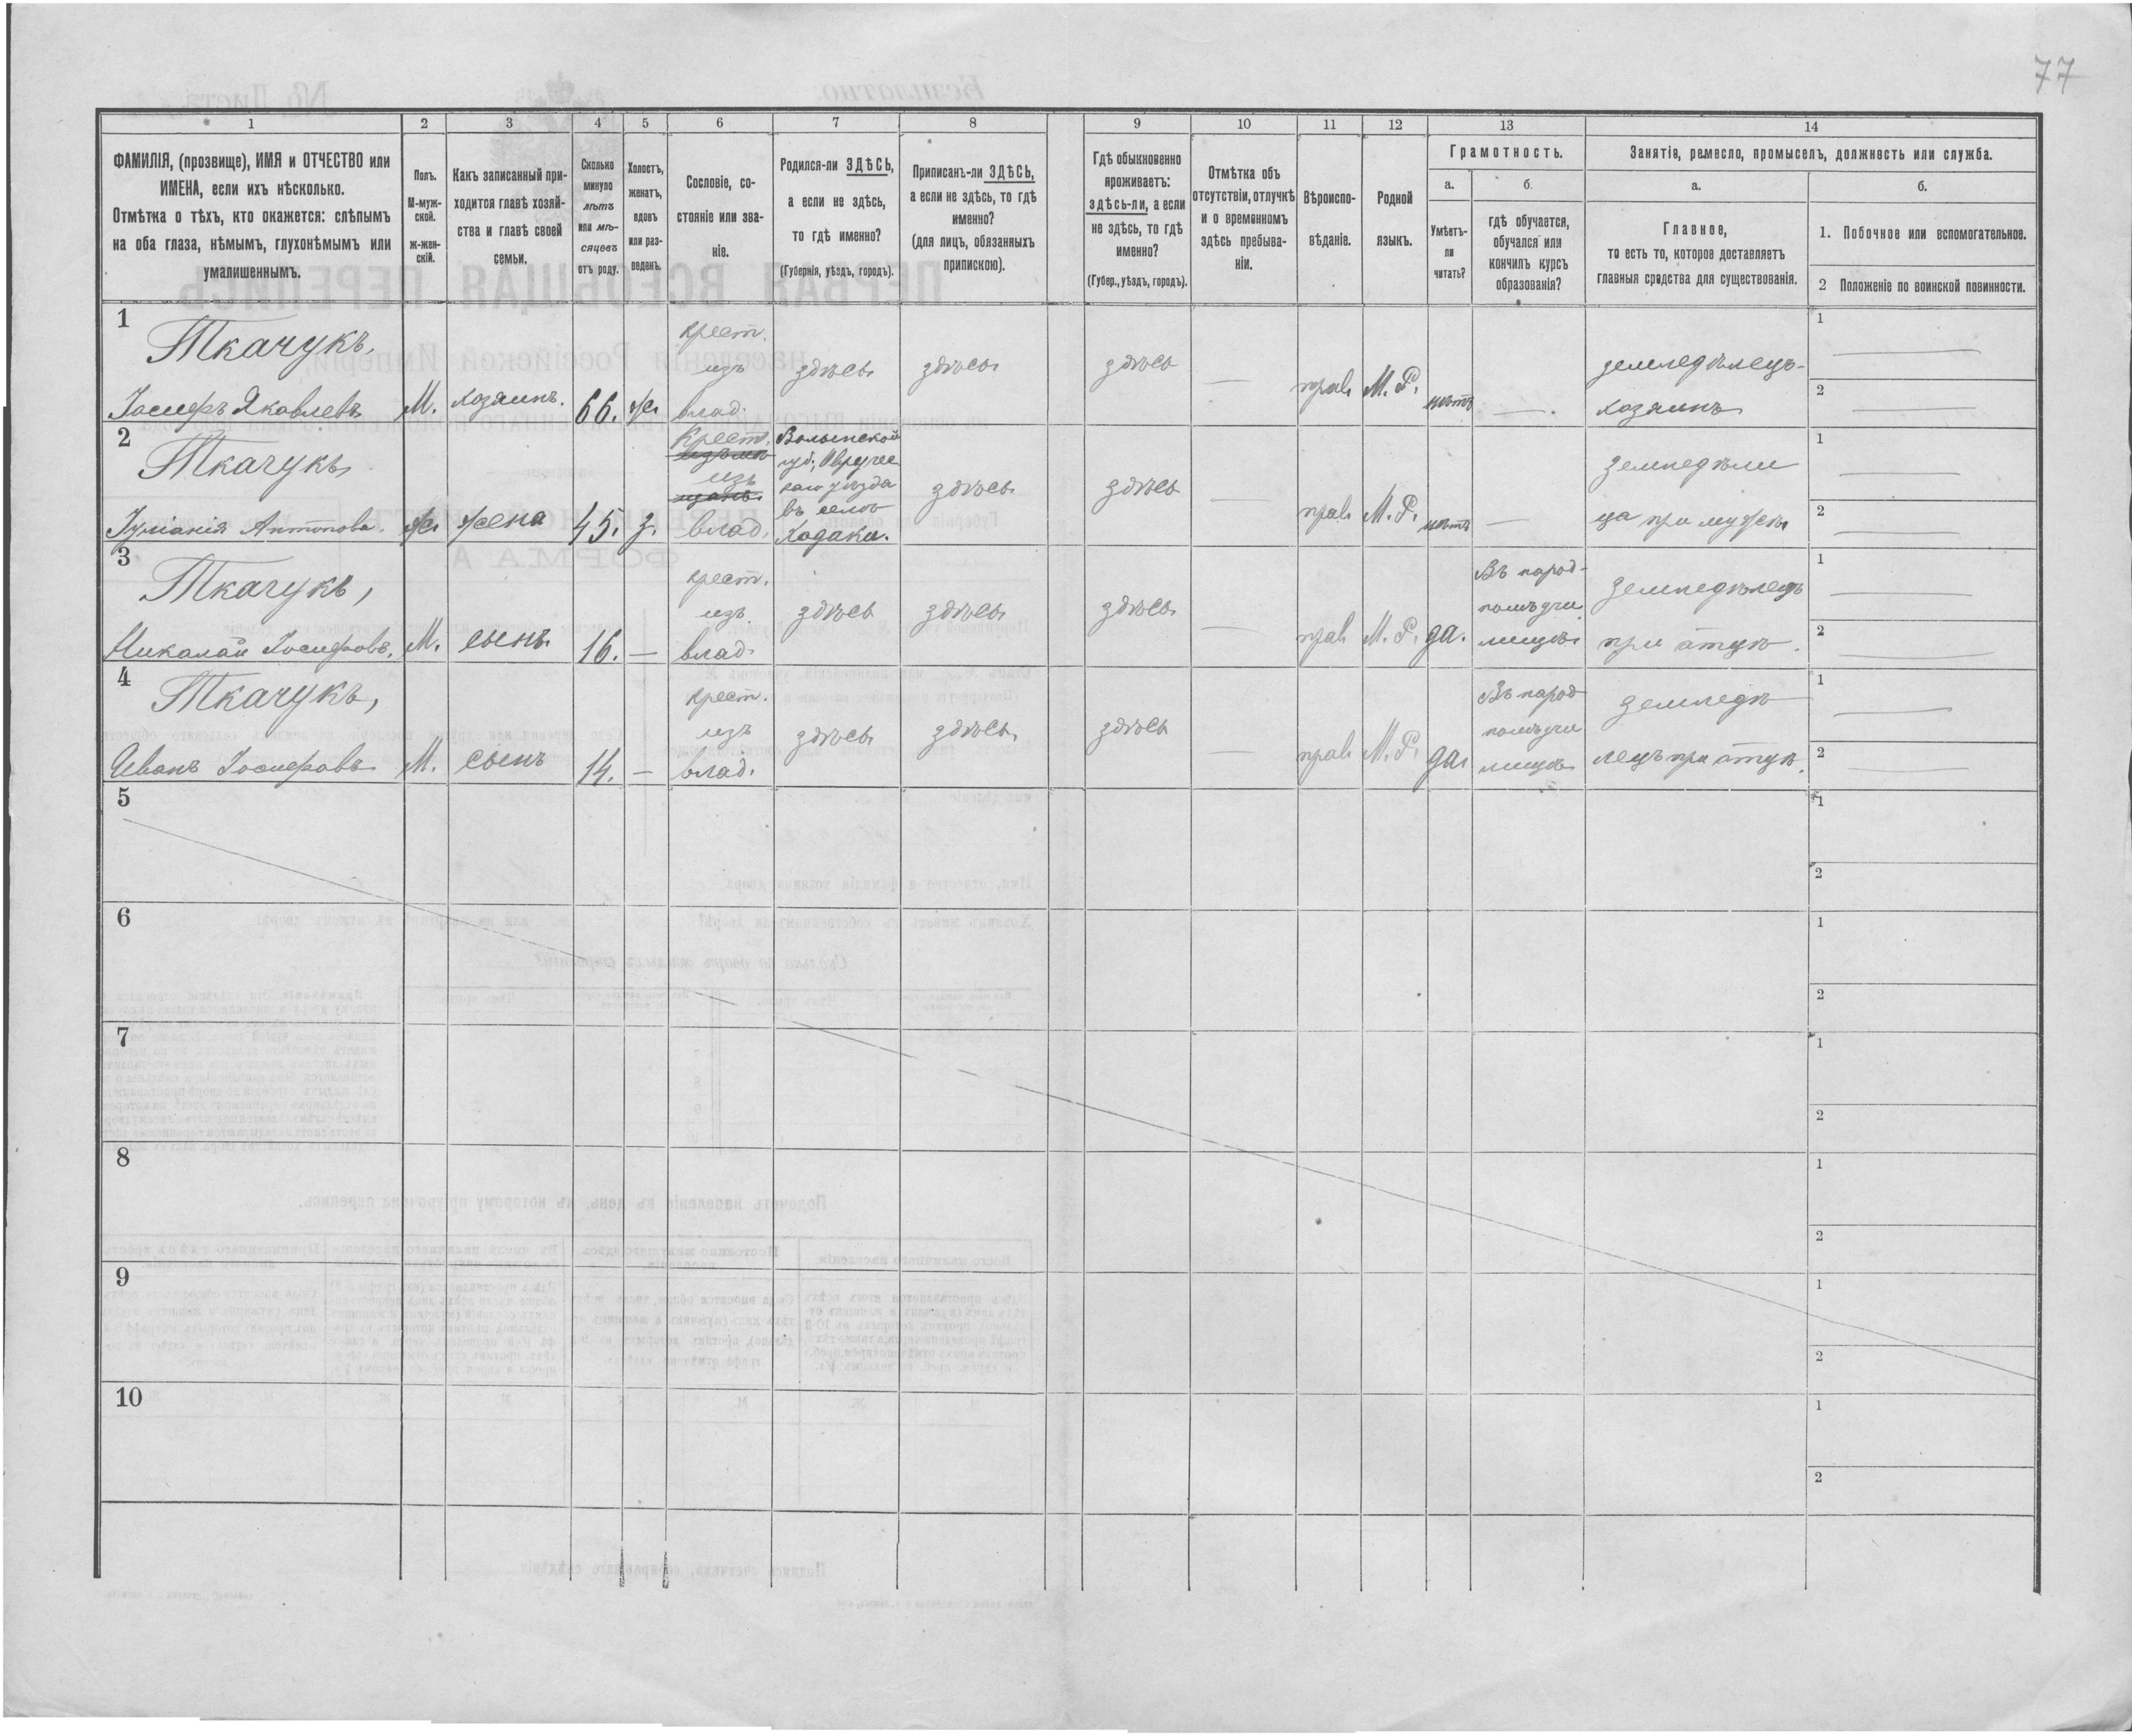 77
1 2 3 4 5 6 7 8 9 10 11 12 13 14
ФАМИЛІЯ, (прозвище), ИМЯ и ОТЧЕСТВО или
ИМЕНА, если ихъ нѣсколько.
Отмѣтка о тѣхъ, кто окажется: слѣпымъ
на оба глаза, нѣмымъ, глухонѣмымъ или
умалишеннымъ.
Полъ.
М-муж-
ской.
ж-жен-
скій.
Какъ записанный при-
ходится главѣ хозяй-
ства и главѣ своей
семьи.
Сколько
минуло
лѣтъ
или мѣ-
сяцевъ
отъ роду.
Холостъ,
женатъ,
вдовъ
или раз-
веденъ.
Сословіе, со-
стояніе или зва-
ніе.
Родился-ли ЗДѢСЬ,
а если не здѣсь,
то гдѣ именно?
(Губернія, уѣздъ, городъ).
Приписанъ-ли ЗДѢСЬ,
а если не здѣсь, то гдѣ
именно?
(для лицъ, обязанныхъ
припискою).
Гдѣ обыкновенно
проживаетъ:
здѣсь-ли, а если
не здѣсь, то гдѣ
именно?
(Губер., уѣздъ, городъ).
Отмѣтка объ
отсутствіи, отлучкѣ
и о временномъ
здѣсь пребыва-
ніи.
Вѣроиспо-
вѣданіе.
Родной
языкъ.
Грамотность.
а.
Умѣетъ-
ли
читать?
б.
гдѣ обучается,
обучался или
кончилъ курсъ
образованія?
Занятіе, ремесло, промыселъ, должность или служба.
а.
Главное,
то есть то, которое доставляетъ
главныя средства для существованія.
б.
1. Побочное или вспомогательное.
2 Положеніе по воинской повинности.
1
Ткачукъ,
Іосифъ Яковлевъ
М.
хозяинъ.
66.
ж.
крест.
изъ
влад.
здѣсь
здѣсь
здѣсь
—
прав.
М. Р.
нѣтъ
—.
земледѣлецъ-
хозяинъ
1 —
2 —
2
Ткачукъ
Антонова.
ж.
жена
45.
з.
Крест.
изъ
влад.
Волынской
губ., Овруче
каго уѣзда
въ селѣ
Ходаки.
здѣсь
здѣсь
—
прав.
М. Р.
нѣтъ
—
земледѣли
ца при мужѣ
1 —
2 —
3
Ткачукъ,
Николай Іосифовъ.
М.
сынъ
16.
—
крест.
изъ
влад.
здѣсь
здѣсь
здѣсь
—
прав
М. Р.
да.
Въ народ-
номъ учи
лищѣ
земледѣлецъ
при отцѣ.
1 —
2 —
4
Ткачукъ,
Иванъ Іосифовъ
М.
сынъ
14.
—
крест.
изъ
влад.
здѣсь
здѣсь
здѣсь
—
прав
М. Р.
да
Въ народ
номъ учи
лищѣ
земледѣ
лецъ при отцѣ.
1 —
2 —
5
1
2
6
1
2
7
1
2
8
1
2
9
1
2
10
1
2